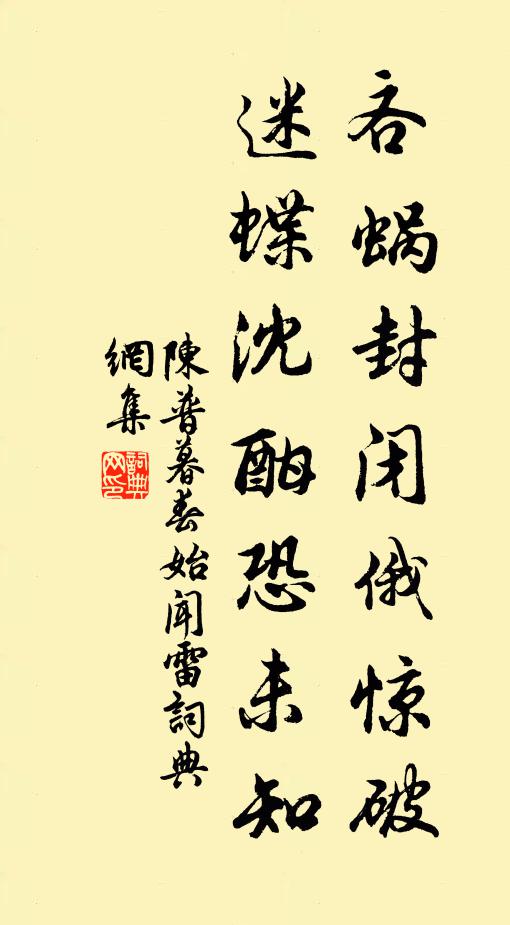 吝蜗封闭俄惊破
迷蝶沈酣恐未知
陳普暮春始闻雷詞典
網集
詞典
网印